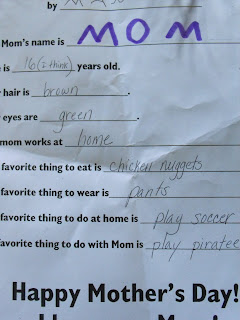 by
Mom's name is MOM
is 16 (I think) years old.
hair is brown.
eyes are green.
mom works at home
favorite thing to eat is chicken nuggets
favorite thing to wear is pants
favorite thing to do at home is play soccer
favorite thing to do with Mom is play piratee
Happy Mother's Day!